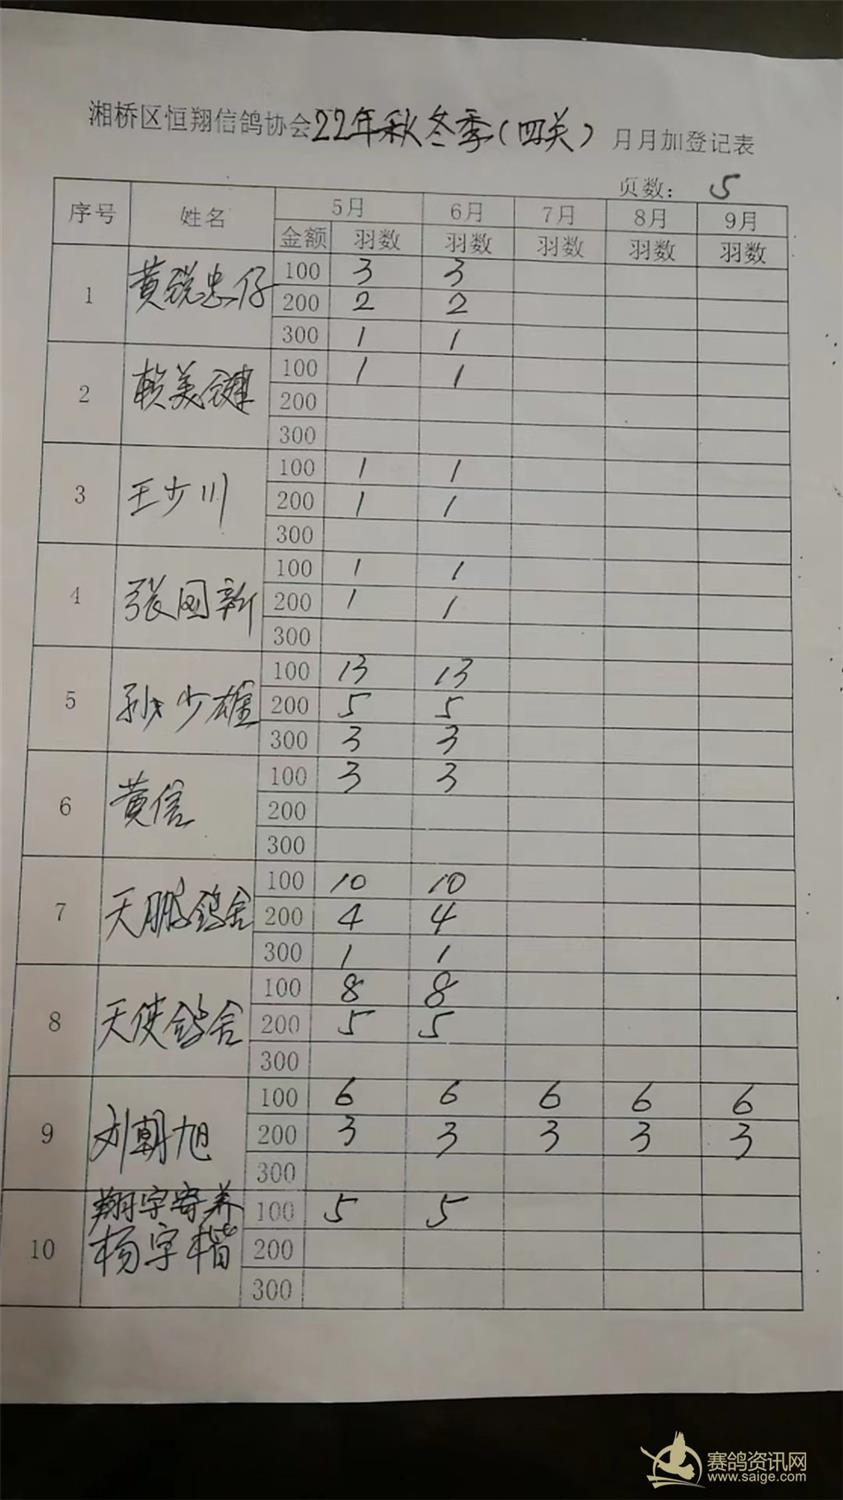 湘桥区恒翔信鸽协会22年秋冬季(四关)月月加登记表
页数: 5
序号 姓名 5月 6月 7月 8月 9月
金额 羽数 羽数 羽数 羽数 羽数
1 黄锐忠仔 100 3 3
200 2 2
300 1 1
2 赖美健 100 1 1
200
300
3 王少川 100 1 1
200 1 1
300
4 张国新 100 1 1
200 1 1
300
5 孙少雄 100 13 13
200 5 5
300 3 3
6 黄信 100 3 3
200
300
7 天鹏鸽舍 100 10 10
200 4 4
300 1 1
8 天使鸽舍 100 8 8
200 5 5
300
9 刘朝旭 100 6 6 6 6 6
200 3 3 3 3 3
300
10 翔宇寄养 100 5 5
杨宇楷 200
300
赛鸽资讯网
www.saige.com